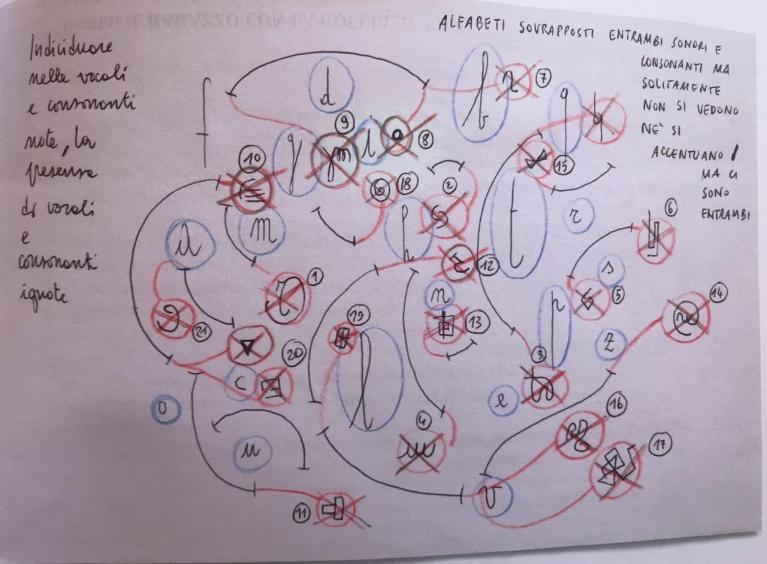 Individuare
nelle vocali
e consonanti
note, la
presenza
di vocali
e
consonanti
ignote
ALFABETI SOVRAPPOSTI ENTRAMBI SONORI E
CONSONANTI MA
SOLITAMENTE
NON SI VEDONO
NE' SI
ACCENTUANO /
MA CI
SONO
ENTRAMBI
d
7
9
8
10
18
2
15
t
r
6
m
h
12
s
5
1
n
13
p
14
19
21
20
3
z
c
l
o
e
4
16
u
17
v
11